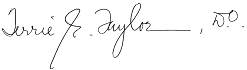 Terrie E. Taylor, D.O.